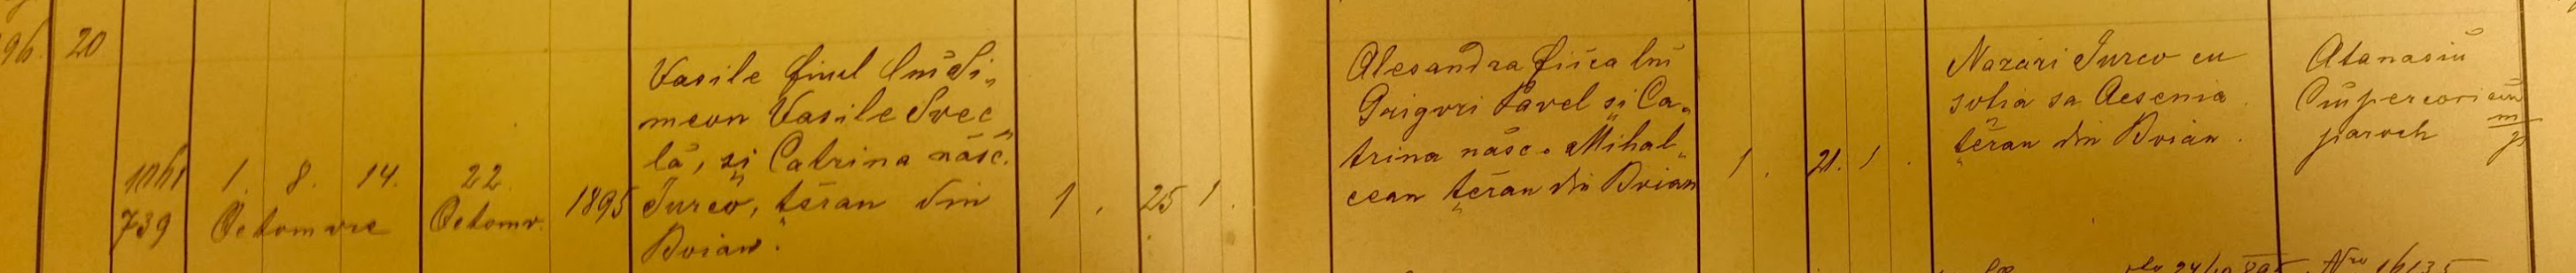 96. 20
1061
739
1. 8. 14.
Octomvre
22.
Octomv.
1895
Vasile fiiul lui Si„
meon Vasile Svec„
lă, și Catrina născ.
Jurco, țĕran din
Boian.
1 . 25 1 .
Alesandra fiica lui
Grigori Pavel și Ca„
trina născ. Mihal„
cean țĕran din Boian
1 . 21. 1 .
Nazari Jurco cu
soția sa Acsenia
țĕran din Boian.
Atanasiu
paroch
Nro 16135